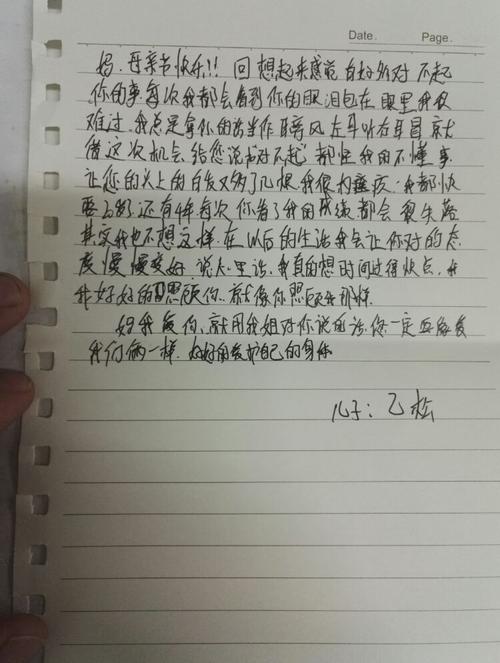 Date. Page.
妈,母亲节快乐!! 回想起来感觉自好多对不起
你的事每次我都会看到你的眼泪包在眼里我很
难过,我总是拿你的话当作耳旁风左耳听右耳冒就
借这次机会给您说书对不起都怪我的不懂事
让您的头上的白发又多了几根我很内疚,我都快
要了还有4年每次你看了我的成绩都会很失落
其实我也不想这样.在以后的生活我会让你对的态
度慢慢变好,说心里话,我真的想时间过得快点,
我好好的照顾你,就像你照顾我那样.
妈我爱你,就用我姐对你说的话您一定要像爱
我们俩一样.好好的爱护自己的身体
儿子:乙松